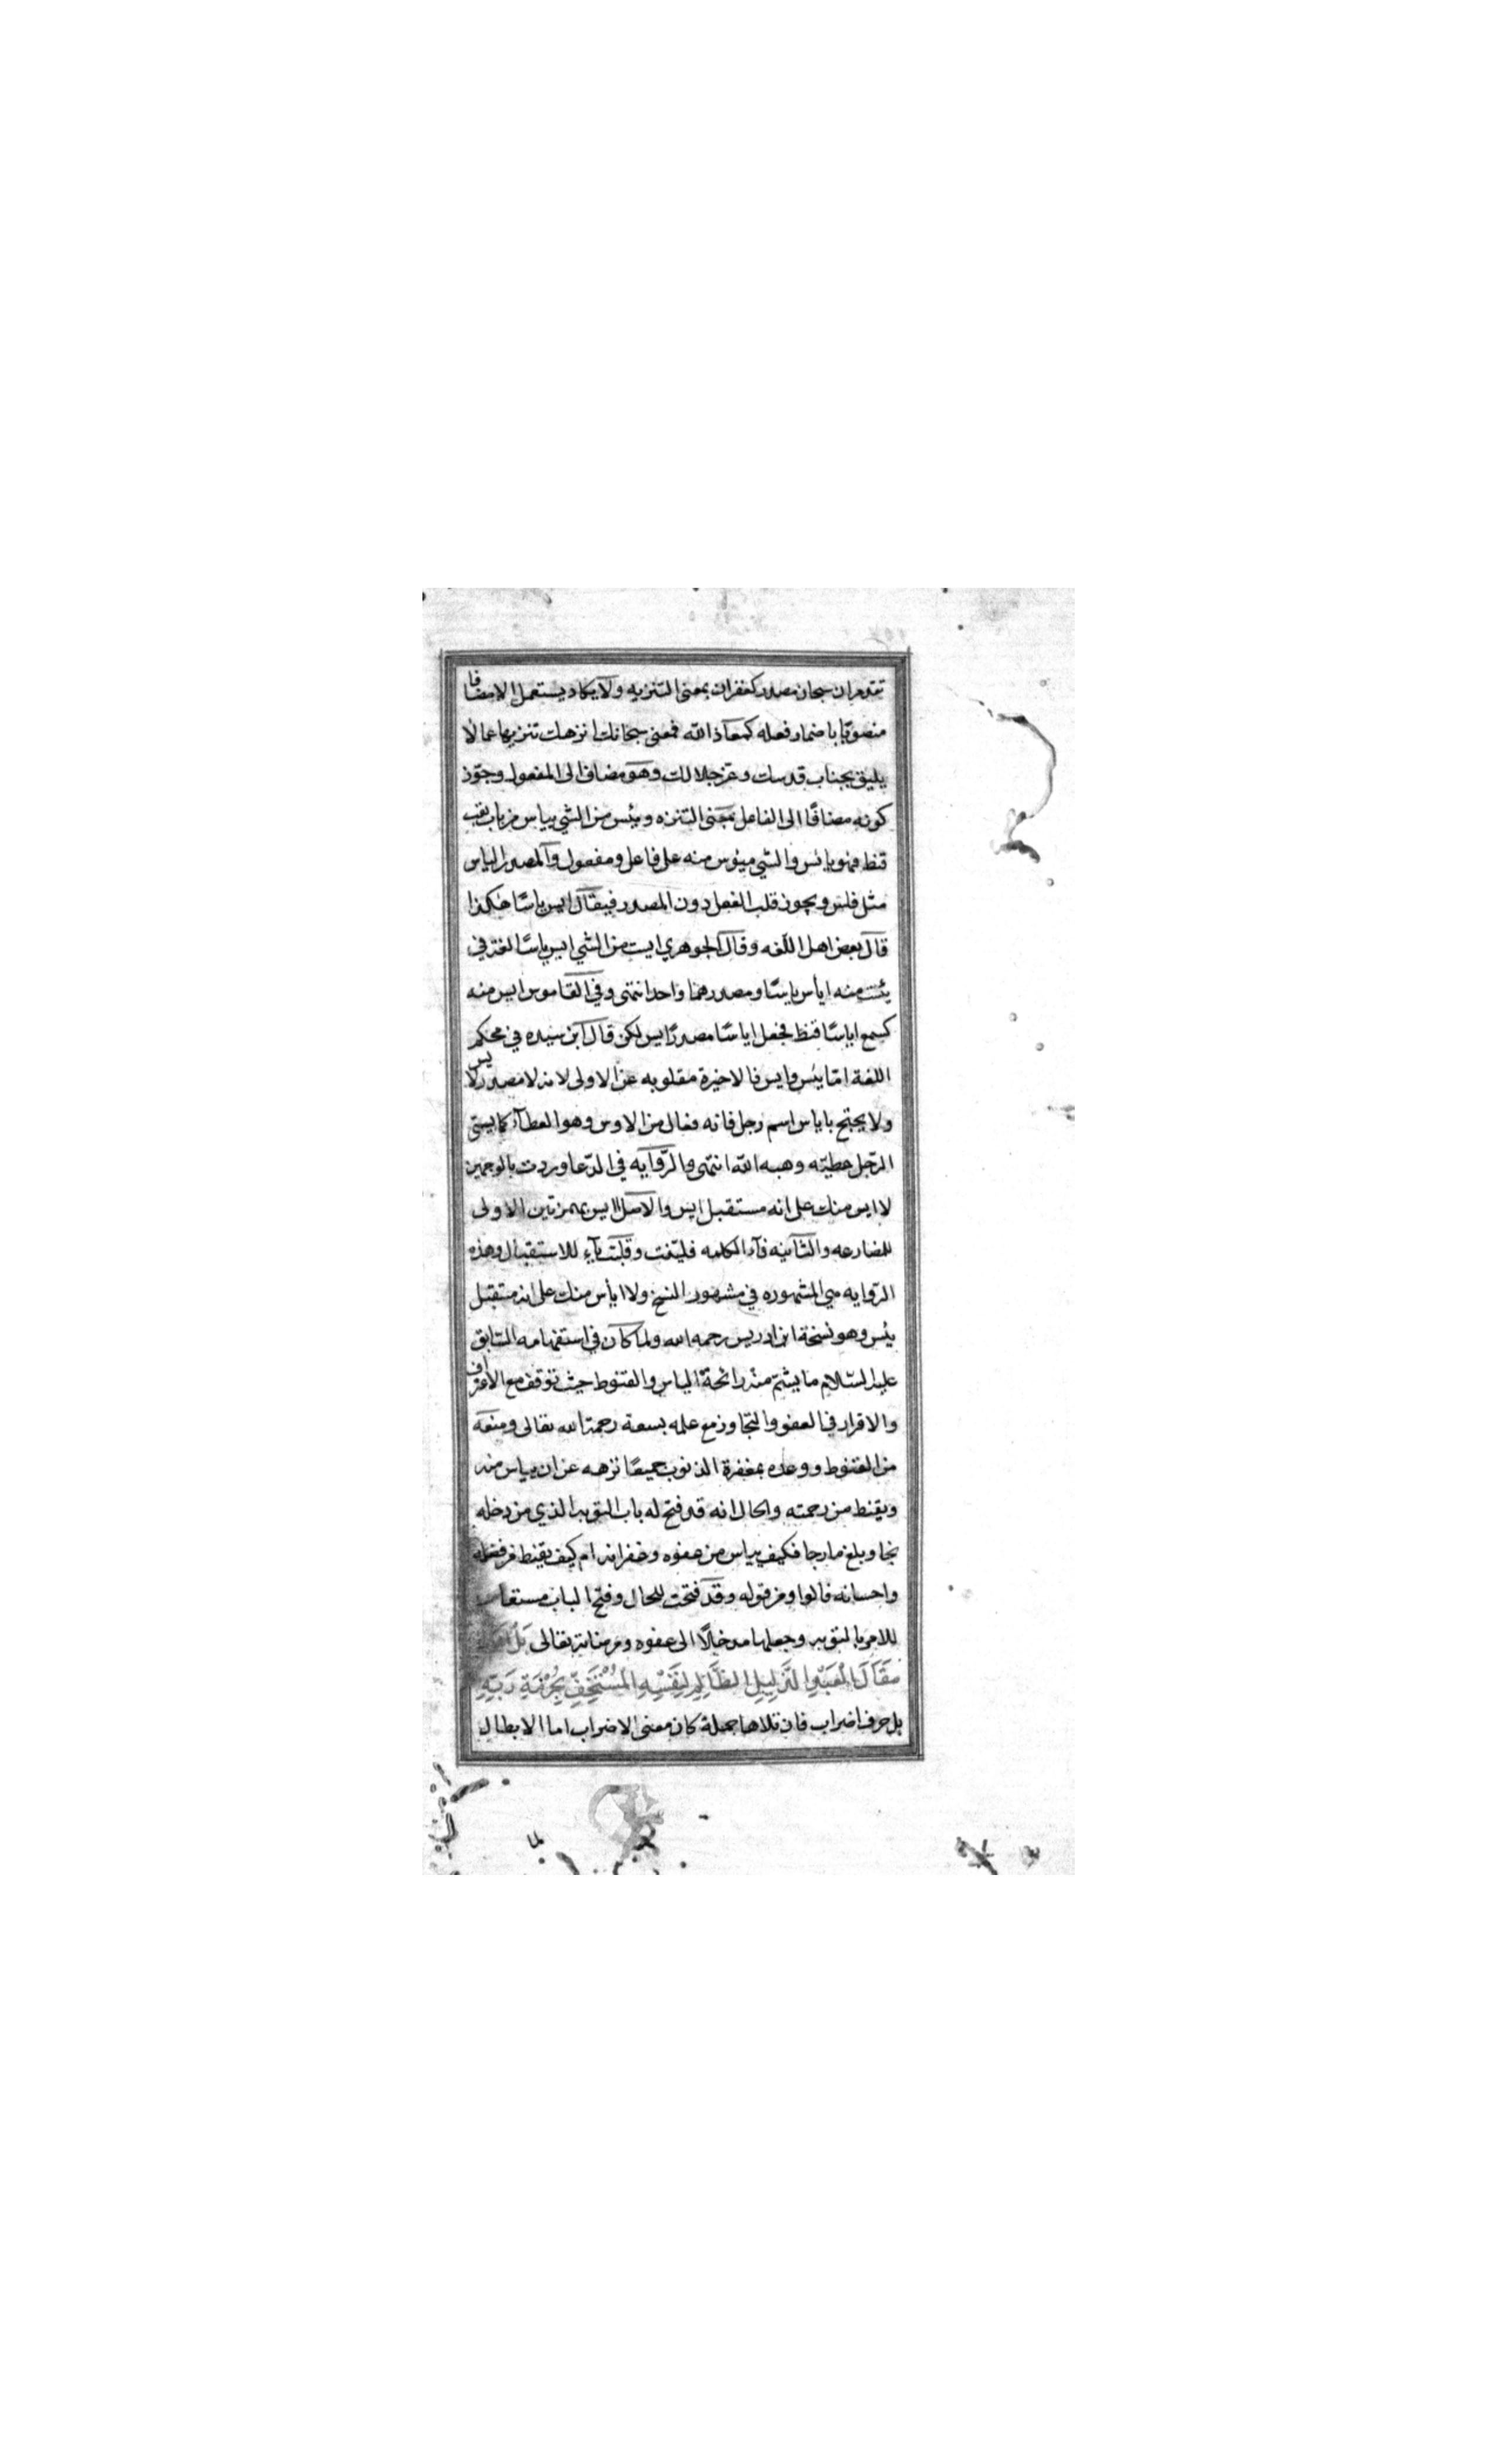 تقدم ان سبحان مصدر كغفران بمعنى التنزيه ولا يكاد يستعمل الا مضافا
منصوبا باضمار فعله كمعاذ الله فمعنى سبحانك انزهك تنزيها عما لا
يليق بجناب قدسك وعز جلالك وهو مضاف الى المفعول وجوز
كونه مضافا الى الفاعل بمعنى التنزه ويئس من الشي يياس من باب تعب
قنط فهو يائس والشي ميئوس منه على فاعل ومفعول والمصدر الياس
مثل فلس ويجوز قلب الفعل دون المصدر فيقال ايس ياسا هكذا
قال بعض اهل اللغه وقال الجوهري ايست من الشي ايس ياسا لغة في
يئست منه ايأس يأسا ومصدرهما واحد انتهى وفي القاموس ايس منه
كسمع اياسا قنط فجعل اياسا مصدرا يس لكن قال ابن سيده في محكم
اللغة اما يئس وايس فالاخيرة مقلوبه عن الاولى لانه لا مصدر لايس
ولا يحتج باياس اسم رجل فانه فعال من الاوس وهو العطآء كما يسمى
الرجل عطيته وهبه الله انتهى والروايه في الدعا وردت بالوجهين
لا ايس منك على انه مستقبل ايس والاصل اايس بهمزتين الاولى
للمضارعه والثانيه فآء الكلمه فلينت وقلبت يآء للاستقبال وهذه
الروايه هي المشهوره في مشهور النسخ ولا ايأس منك على انه مستقبل
يئس وهو نسخة ابن ادريس رحمه الله ولما كان في استفهامه السابق
عليه السلام ما يشتم منه رائحة الياس والقنوط حيث توقف مع الاعتراف
والاقرار في العفو والتجاوز مع علمه بسعة رحمة الله تعالى ومنعه
من القنوط ووعده بمغفرة الذنوب جميعا نزهه عن ان يياس منه
ويقنط من رحمته والحال انه قد فتح له باب التوبه الذي من دخله
نجا وبلغ ما رجا فكيف يياس من عفوه وغفرانه ام كيف يقنط من فضله
واحسانه فالواو من قوله وقد فتحت للحال وفتح الباب مستعار
للامر بالتوبه وجعلها مدخلا الى عفوه ومرضاته تعالى بل اقول
مَقَالَ الْعَبْدِ الذَّلِيلِ الظَّالِمِ لِنَفْسِهِ الْمُسْتَخِفِّ بِحُرْمَةِ رَبِّهِ
بل حرف اضراب فان تلاها جملة كان معنى الاضراب اما الابطال